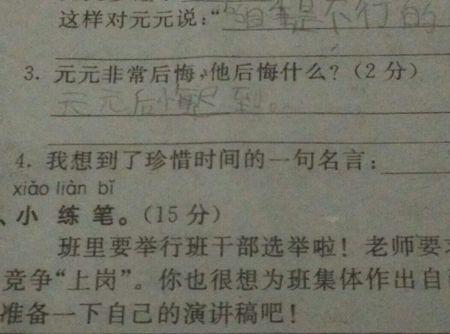 这样对元元说：“自重是不行的
3. 元元非常后悔，他后悔什么？（2 分）
元元后悔迟到。
4. 我想到了珍惜时间的一句名言：
xiǎo liàn bǐ
、小 练 笔。（15 分）
班里要举行班干部选举啦！老师要
竞争“上岗”。你也很想为班集体作出自
准备一下自己的演讲稿吧！